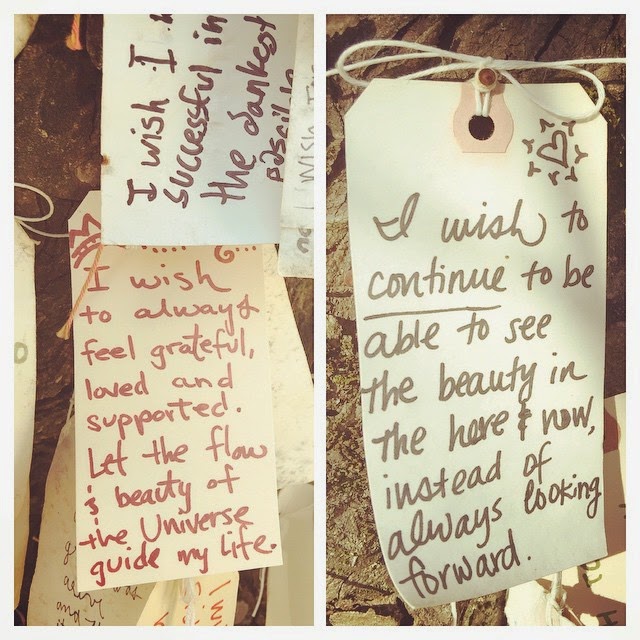 I wish I
successful in
the dankest
possible
I wish
to always
feel grateful,
loved and
supported.
Let the flow
& beauty of
the Universe
guide my life.
I wish to
continue to be
able to see
the beauty in
the here & now,
instead of
always looking
forward.